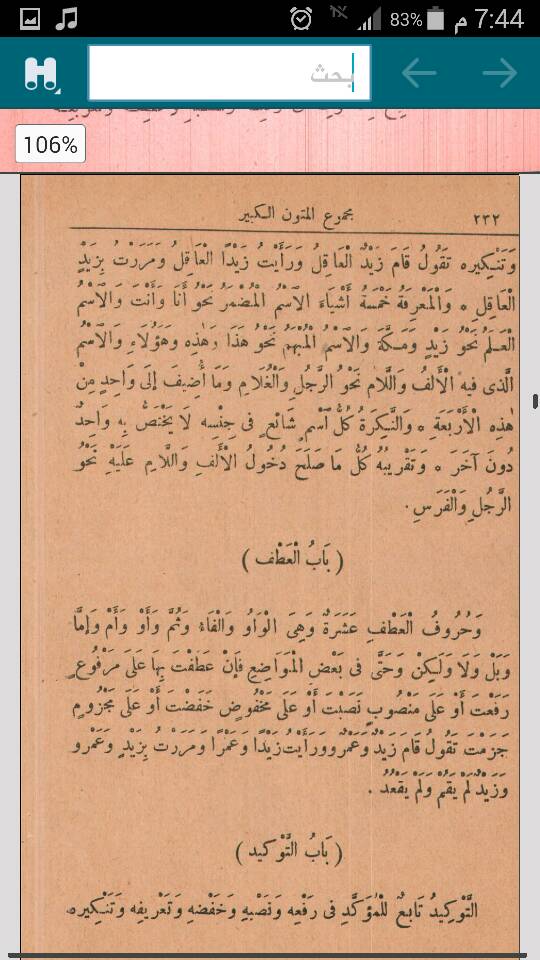 83% م 7:44
بحث
106%
٢٣٢ مجموع المتون الكبير
وَتَنْكِيرِه تَقُولُ قَامَ زَيْدٌ الْعَاقِلُ وَرَأَيْتُ زَيْدًا الْعَاقِلَ وَمَرَرْتُ بِزَيْدٍ
الْعَاقِلِ * وَالْمَعْرِفَةُ خَمْسَةُ أَشْيَاءَ الْاسْمُ الْمُضْمَرُ نَحْوُ أَنَا وَأَنْتَ وَالْاسْمُ
الْعَلَمُ نَحْوُ زَيْدٍ وَمَكَّةَ وَالْاسْمُ الْمُبْهَمُ نَحْوُ هَذَا وَهٰذِهِ وَهَؤُلَاءِ وَالْاسْمُ
الَّذِى فِيهِ الْأَلِفُ وَاللَّامُ نَحْوُ الرَّجُلِ وَالْغُلَامِ وَمَا أُضِيفَ إِلَى وَاحِدٍ مِنْ
هٰذِهِ الْأَرْبَعَةِ * وَالنَّكِرَةُ كُلُّ اسْمٍ شَائِعٍ فِى جِنْسِهِ لَا يَخْتَصُّ بِهِ وَاحِدٌ
دُونَ آخَرَ * وَتَقْرِيبُهُ كُلُّ مَا صَلَحَ دُخُولُ الْأَلِفِ وَاللَّامِ عَلَيْهِ نَحْوُ
الرَّجُلِ وَالْفَرَسِ .
( بَابُ الْعَطْفِ )
وَحُرُوفُ الْعَطْفِ عَشَرَةٌ وَهِىَ الْوَاوُ وَالْفَاءُ وَثُمَّ وَأَوْ وَأَمْ وَإِمَّا
وَبَلْ وَلَا وَلَكِنْ وَحَتَّى فِى بَعْضِ الْمَوَاضِعِ فَإِنْ عَطَفْتَ بِهَا عَلَى مَرْفُوعٍ
رَفَعْتَ أَوْ عَلَى مَنْصُوبٍ نَصَبْتَ أَوْ عَلَى مَخْفُوضٍ خَفَضْتَ أَوْ عَلَى مَجْزُومٍ
جَزَمْتَ تَقُولُ قَامَ زَيْدٌ وَعَمْرٌو وَرَأَيْتُ زَيْدًا وَعَمْرًا وَمَرَرْتُ بِزَيْدٍ وَعَمْرٍو
وَزَيْدٌ لَمْ يَقُمْ وَلَمْ يَقْعُدْ .
( بَابُ التَّوْكِيدِ )
التَّوْكِيدُ تَابِعٌ لِلْمُؤَكَّدِ فِى رَفْعِهِ وَنَصْبِهِ وَخَفْضِهِ وَتَعْرِيفِهِ وَتَنْكِيرِهِ